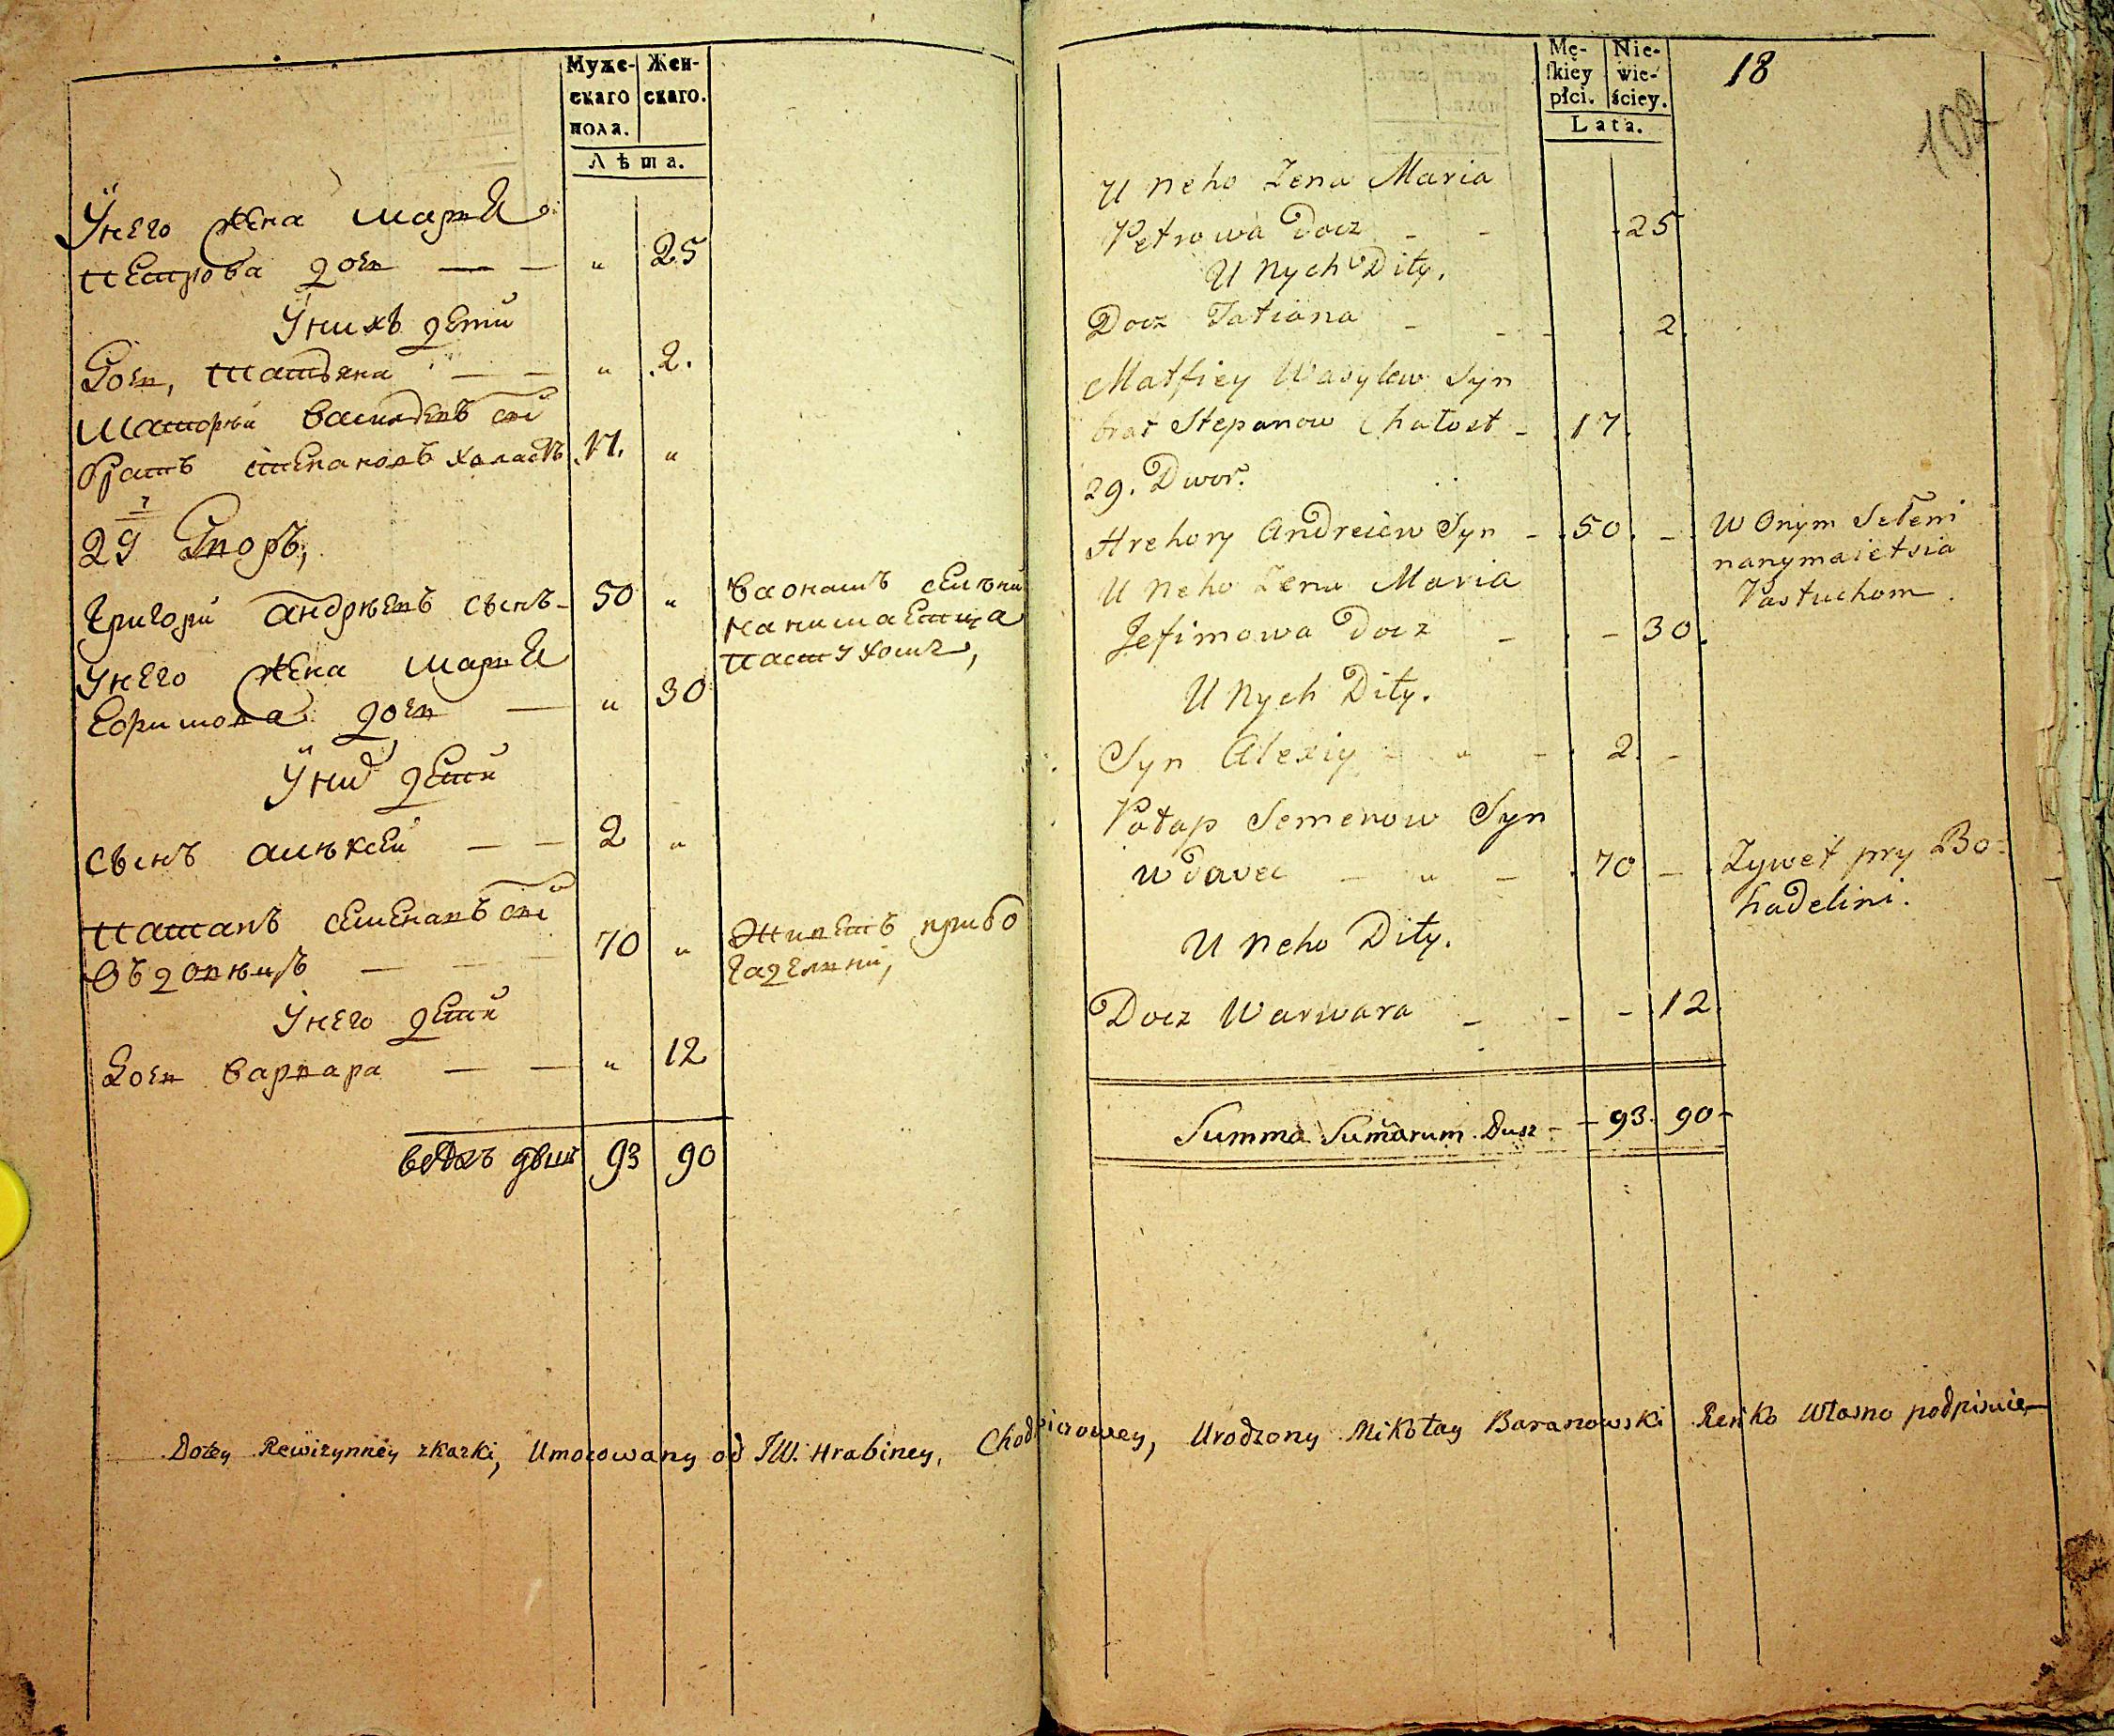 Муже-
скаго
пола.
Жен-
скаго.
Лѣта.
Унего жена мариа
петрова доч — — " 25
Унихъ дети
Доч, татьяна — — " 2.
Матѳѣй василевъ сн
братъ степановъ холастъ 17. "
29 Дворъ,
Григори андрѣевъ сынъ - 50 "
ваонамъ селѣни
нанимаетца
пастухомъ,
Унего жена мариа
Ефимова доч — " 30
Уних дети
Сынъ алѣксей — — 2 "
Патапъ семенавъ сн
— — 70 "
Живетъ прибо
гаделни,
Унего дети
Доч варвара — — " 12
душъ 93 90
Mę-
skiey
płci.
Nie-
wie-
ściey.
Lata.
18
U neho Zena Maria
Petrowa Docz - - 25
U Nych Dity.
Docz Tatiana - - - 2.
Matfiey Wasylew Syn
brat Stepanow Chałost - 17.
29. Dwor.
Hrehory Andreiew Syn - 50. -
W Onym Seleni
nanymaietsia
Pastuchom.
U Neho Zena Maria
Jefimowa Docz - - 30.
U Nych Dity.
Syn Alexiy - " - 2. -
Potap Semenow Syn
wdavec - " - 70 -
Zywet pry Bo-
hadelini.
U Neho Dity.
Docz Warwara - - - 12.
Summa Sumarum Dusz - - 93. 90 -
Do tey Rewizynney skazki, Umocowany od JW. Hrabiney, Urodzony Mikołay Baranowski Ręko Własno podpisuie